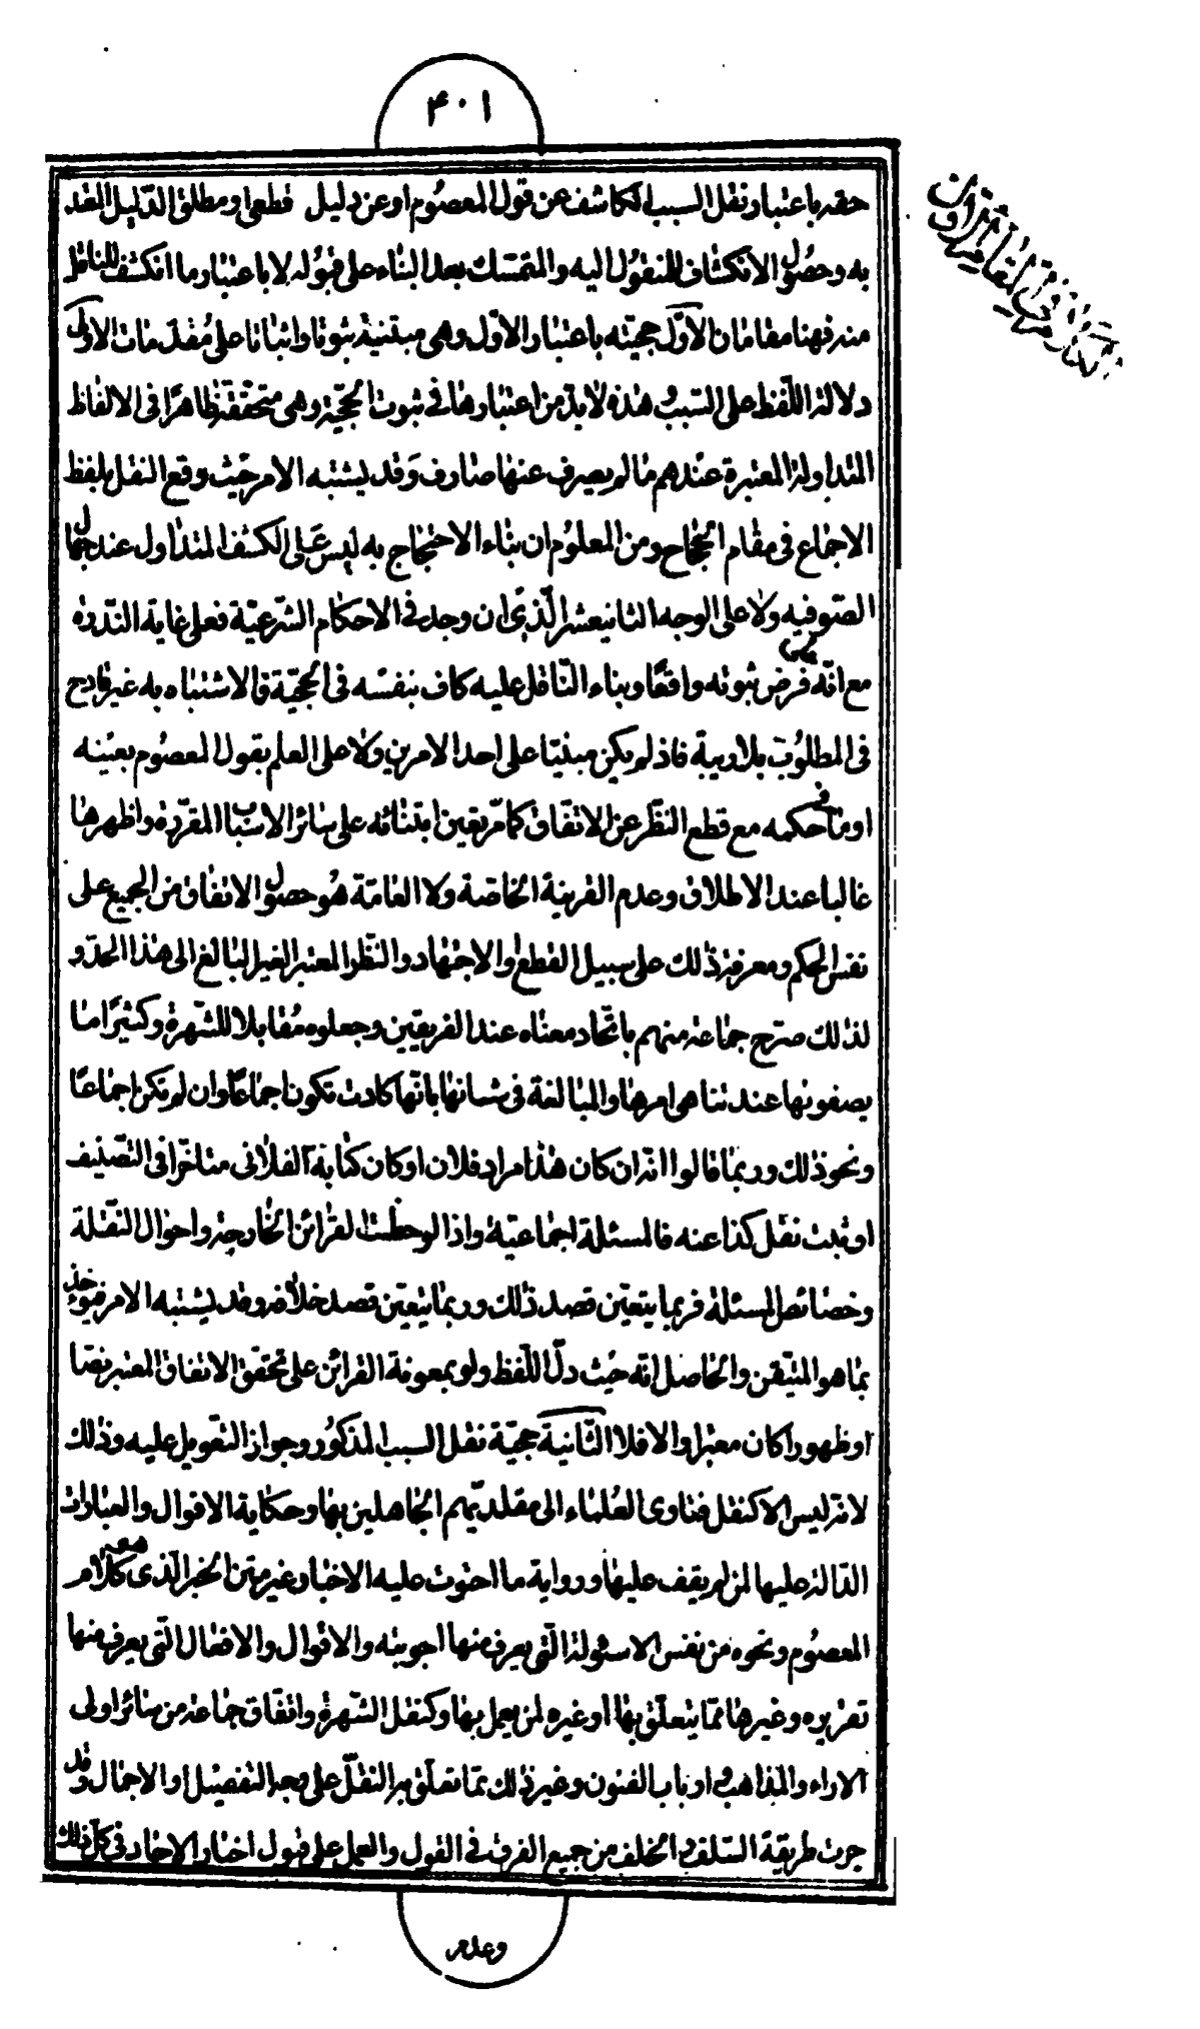 ٤٠١
حقه باعتبار نقل السبب الكاشف عن قول المعصوم او عن دليل قطعى او مطلق الدليل المعتد
به وحصول الانكشاف للمنقول اليه والمتمسك بعد البناء على قبوله لا باعتبار ما انكشف للناقل
منه فهنا مقامان الاول حجيته باعتبار الاول وهى مبتنية ثبوتا واثباتا على مقدمات الاولى
دلالة اللفظ على السبب هذه لابد من اعتبارها فى ثبوت الحجية وهى متحققة ظاهرا فى الالفاظ
المتداولة المعتبرة عندهم ما لم يصرف عنها صارف وقد يشتبه الامر حيث وقع النقل بلفظ
الاجماع فى مقام الحجاج ومن المعلوم ان بناء الاحتجاج به ليس على الكشف المتداول عند جهال
الصوفيه ولا على الوجه الثانيعشر الذى ان وجد فى الاحكام الشرعية فعلى غاية الندرة
مع انه فرض ثبوته واقعا وبناء الناقل عليه كاف بنفسه فى الحجية فالاشتباه به غير قادح
فى المطلوب بلا ريبة فاذ لم يكن مبنيا على احد الامرين ولا على العلم بقول المعصوم بعينه
او ما فى حكمه مع قطع النظر عن الاتفاق كما مر يقين ابتنائه على سائر الاسباب المقررة واظهرها
غالبا عند الاطلاق وعدم القرينة الخاصة ولا العامة هو حصول الاتفاق من الجميع على
نفس الحكم ومعرفة ذلك على سبيل القطع والاجتهاد والنظر المعتبر الغير البالغ الى هذا الحد و
لذلك صرح جماعة منهم باتحاد معناه عند الفريقين وجعلوه مقابلا للشهرة وكثيرا ما
يصفونها عند تناهى امرها والمبالغة فى شانها بانها كادت تكون اجماعا وان لم تكن اجماعا
ونحو ذلك وربما قالوا انه ان كان هذا مراد فلان او كان كتابة الفلانى متاخرا فى التصنيف
او ثبت نقل كذا عنه فالمسئلة اجماعية واذا لوحظت القرائن الخارجة واحوال النقلة
وخصائص المسئلة فربما يتعين قصد ذلك وربما يتعين قصد خلافه وقد يشتبه الامر فيؤخذ
بما هو المتيقن والحاصل انه حيث دل اللفظ ولو بمعونة القرائن على تحقق الاتفاق المعتبر نصا
او ظهورا كان معتبرا والا فلا الثانية حجية نقل السبب المذكور وجواز التعويل عليه وذلك
لانه ليس الا كنقل فتاوى العلماء الى مقلديهم الجاهلين بها وحكاية الاقوال والعبارات
الدالة عليها لمن لم يقف عليها ورواية ما احتوت عليه الاخبار غير متن الخبر الذى معه كلام
المعصوم ونحوه من نفس الاسئولة التى يعرف منها اجوبته والاقوال والافعال التى يعرف منها
تقريره وغيرها مما يتعلق بها او غيره لمن يعمل بها وكنقل الشهرة واتفاق جماعة من سائر اولى
الاراء والمذاهب وارباب الفنون وغير ذلك مما تعلق به النقل على وجه التفصيل او الاجمال وقد
جرت طريقة السلف والخلف من جميع الفرق فى القول والعمل على قبول اخبار الاحاد فى كل ذلك
وعدم